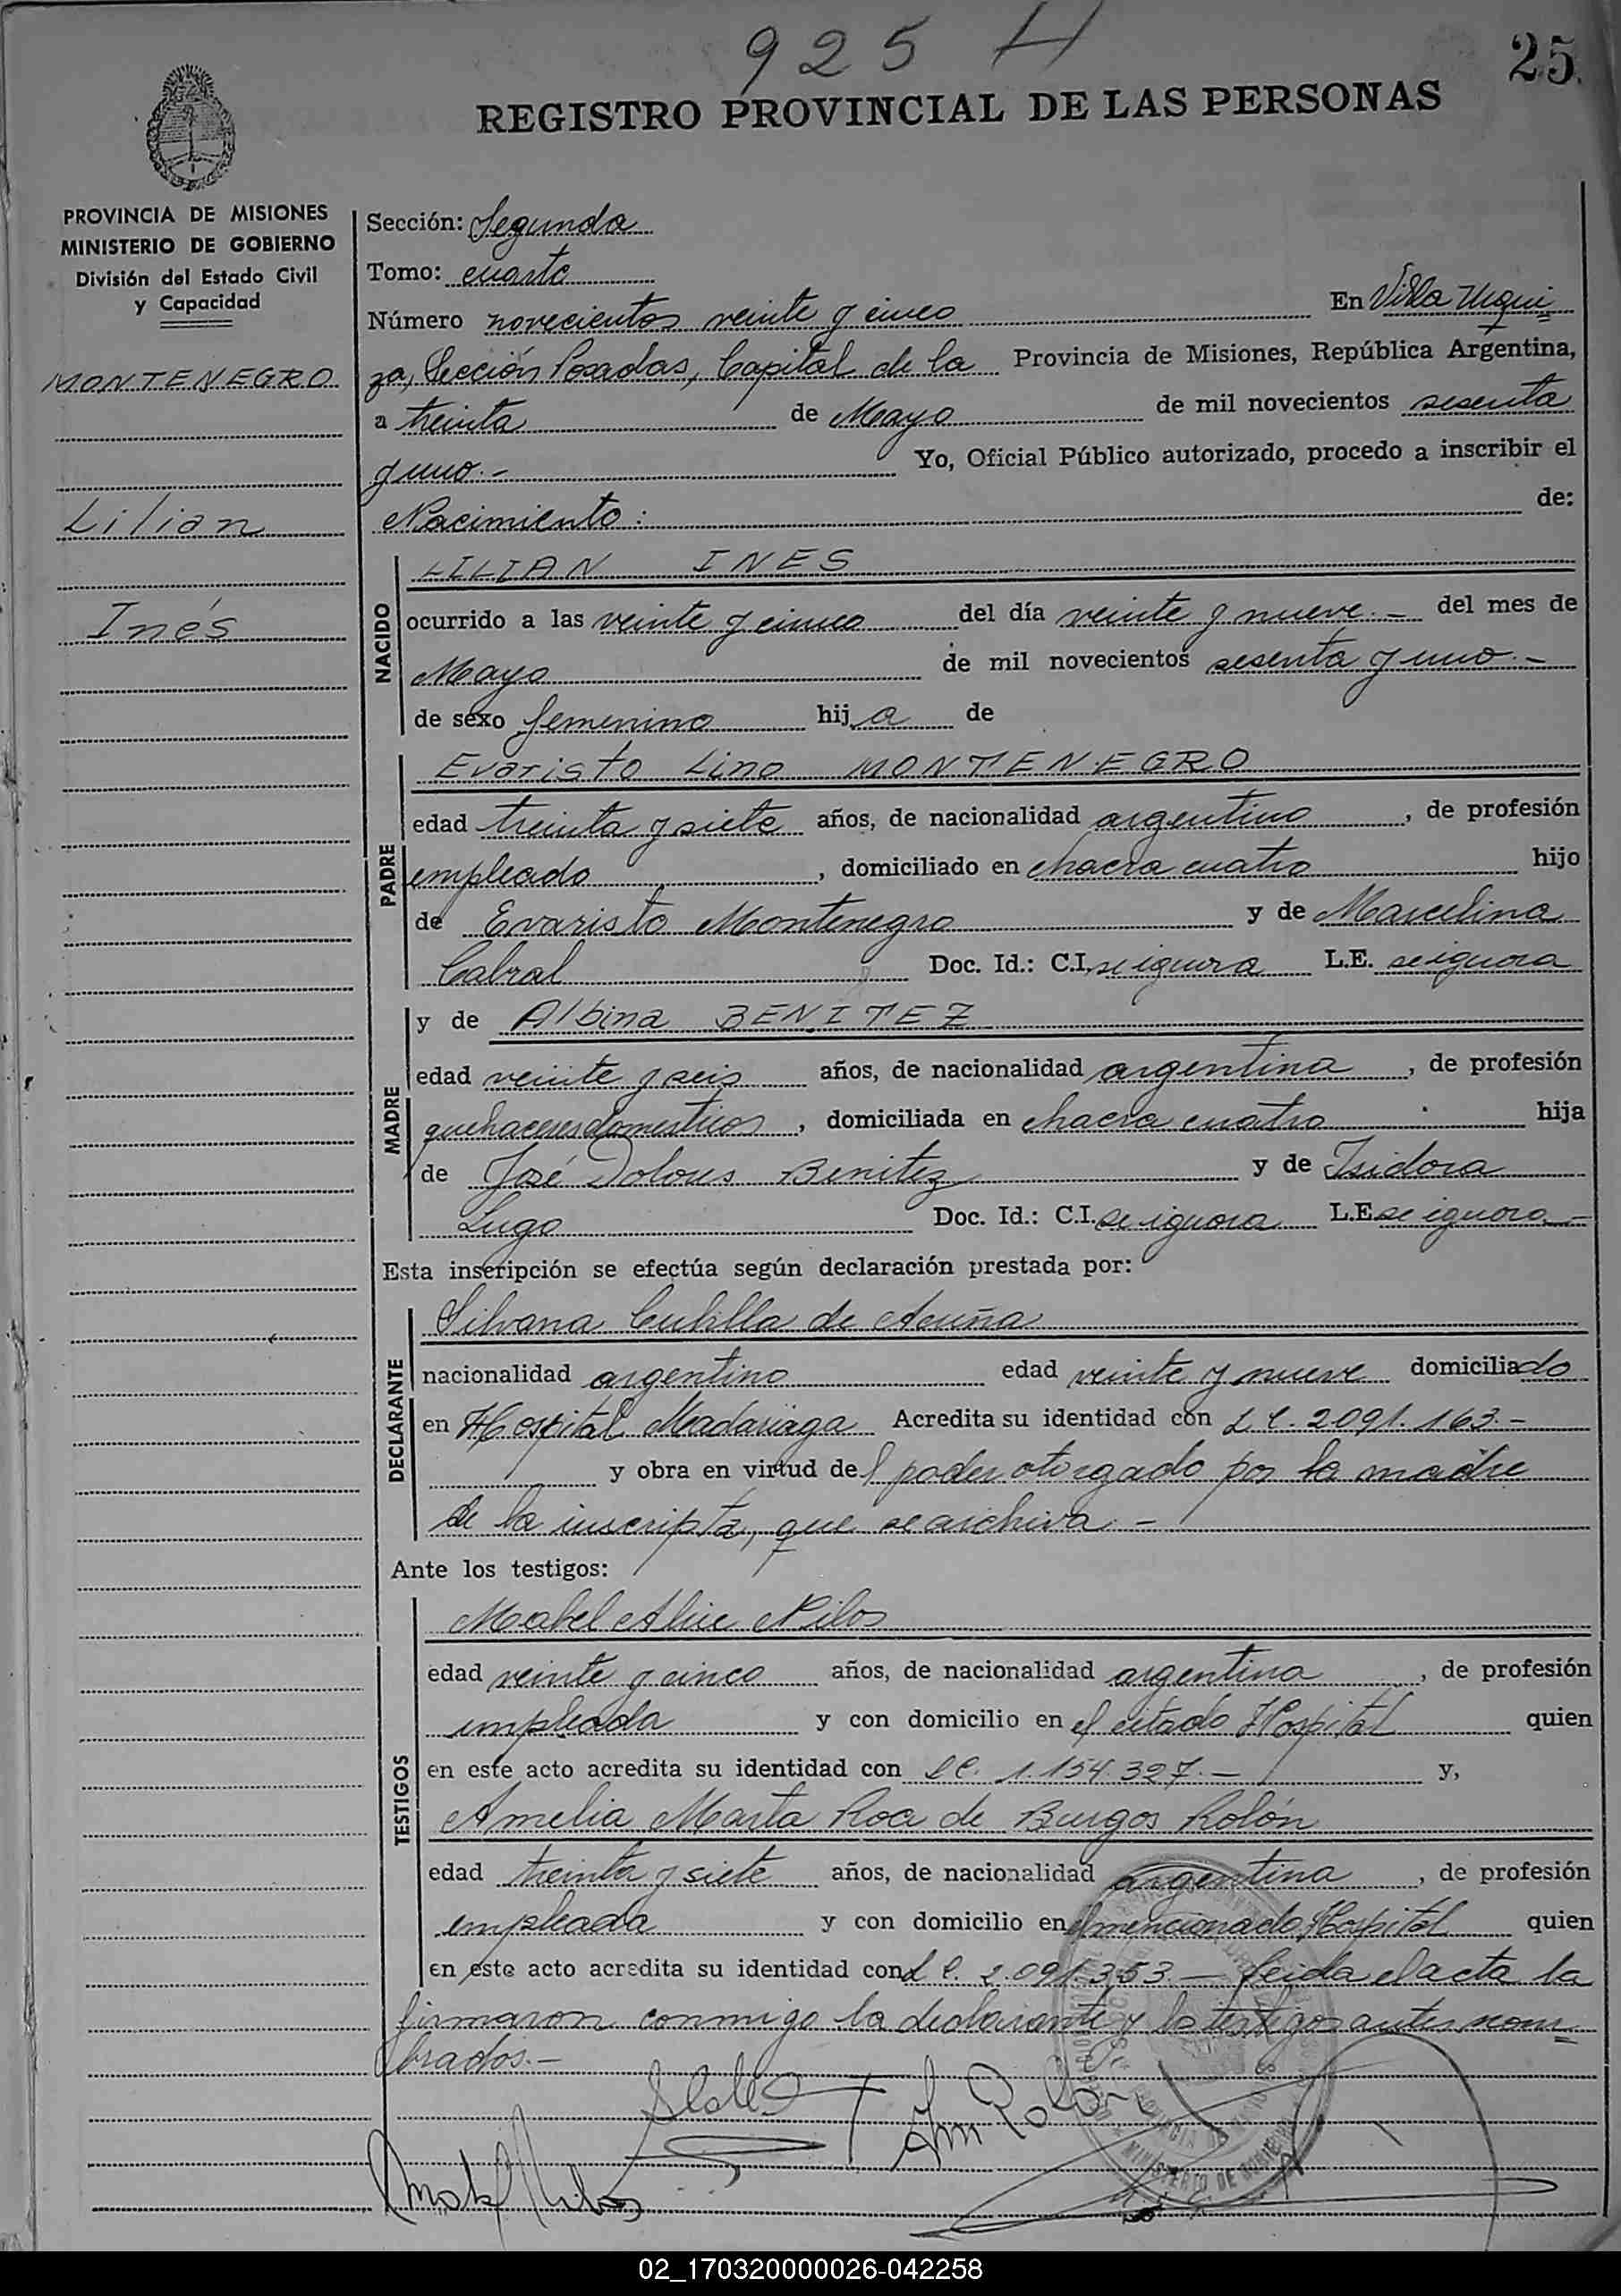 925 H
25.
REGISTRO PROVINCIAL DE LAS PERSONAS
PROVINCIA DE MISIONES
MINISTERIO DE GOBIERNO
División del Estado Civil
y Capacidad
MONTENEGRO
Lilian
Inés
Sección: Segunda
Tomo: cuarto
Número novecientos veinte y cinco En Villa Urqui=
za, Sección Posadas, Capital de la Provincia de Misiones, República Argentina,
a treinta de Mayo de mil novecientos sesenta
y uno.- Yo, Oficial Público autorizado, procedo a inscribir el
Nacimiento: de:
NACIDO
LILIAN INES
ocurrido a las veinte y cinco del día veinte y nueve.- del mes de
Mayo de mil novecientos sesenta y uno.-
de sexo femenino hija de
PADRE
Evaristo Lino MONTENEGRO
edad treinta y siete años, de nacionalidad argentino, de profesión
empleado, domiciliado en chacra cuatro hijo
de Evaristo Montenegro y de Marcelina
Cabral Doc. Id.: C.I. se ignora L.E. se ignora
MADRE
y de Albina BENITEZ
edad veinte y seis años, de nacionalidad argentina, de profesión
quehaceres domesticos, domiciliada en chacra cuatro hija
de José Dolores Benitez y de Isidora
Lugo Doc. Id.: C.I. se ignora L.E. se ignora.-
Esta inscripción se efectúa según declaración prestada por:
DECLARANTE
Silvana de Acuña
nacionalidad argentino edad veinte y nueve domiciliado
en Hospital Madariaga Acredita su identidad con L C. 2091.163.-
y obra en virtud del poder otorgado por la madre
de la inscripta, que se archiva.-
Ante los testigos:
TESTIGOS
Mabel Alice Nilos
edad veinte y cinco años, de nacionalidad argentina, de profesión
empleada y con domicilio en el citado Hospital quien
en este acto acredita su identidad con LC. 1.154.327.- y,
Amelia Marta Roa de Burgos Rolón
edad treinta y siete años, de nacionalidad argentina, de profesión
empleada y con domicilio en el mencionado Hospital quien
en este acto acredita su identidad con L C. 2.091.353.- Leida el acta la
firmaron conmigo la declarante y los testigos antes nom=
brados.-
MINISTERIO DE GOBIERNO
02_170320000026-042258